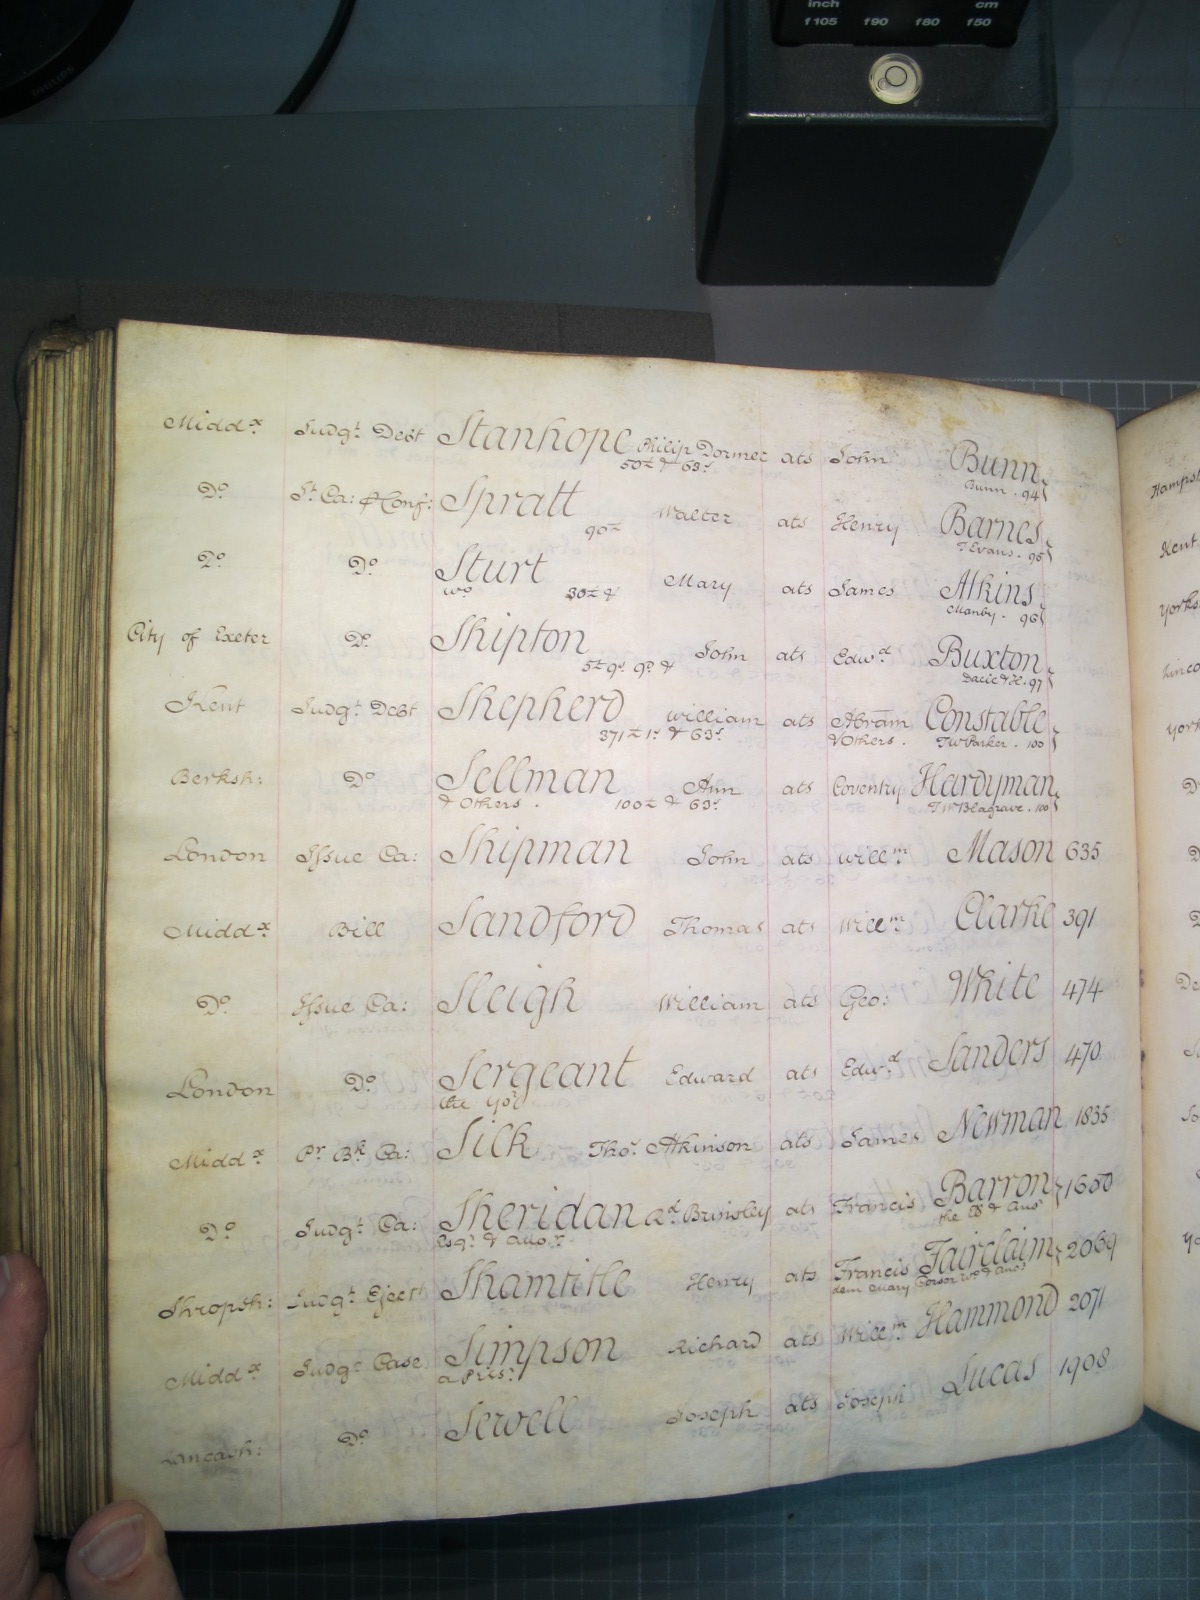 inch cm
f105 f90 f80 f50
PHILIPS
Midd.x Judg.t Debt Stanhope Philip Dormer ats John Bunn
50£ & 63s Bunn . 94
Do St Ca: & Conf: Spratt Walter ats Henry Barnes
90£ T Evans . 95
Do Do Sturt Mary ats James Atkins
wo 30£ & Manby . 96
City of Exeter Do Shipton John ats Edw.d Buxton
5£ 9s 9d & Dacie & H . 97
Kent Judg.t Debt Shepherd William ats Abram Constable
371£ 1s & 63s & Others . T W Parker . 100
Berksh: Do Sellman Ann ats Coventry Hardyman
& Others . 100£ & 63s T W Blagrave . 100
London Issue Ca: Shipman John ats Will.m Mason 635
Midd.x Bill Sandford Thomas ats Will.m Clarke 391
Do Issue Ca: Sleigh William ats Geo: White 474
London Do Sergeant Edward ats Edw.d Sanders 470
the yor
Midd.x Pr Bk Ca: Silk Thos. Atkinson ats James Newman 1835
Do Judg.t Ca: Sheridan Rd Brinsley ats Francis Barron 1650
Esqr. & anor. the Er & anor
Shropsh: Judg.t Eject.t Shamtitle Henry ats Francis Fairclaim 2069
dem Mary Corser wo & anor
Midd.x Judg.t Case Simpson Richard ats Will.m Hammond 2071
a Pris.r
Lancash: Do Sewell Joseph ats Joseph Lucas 1908
Kent
Yorks
Linco
York
Do